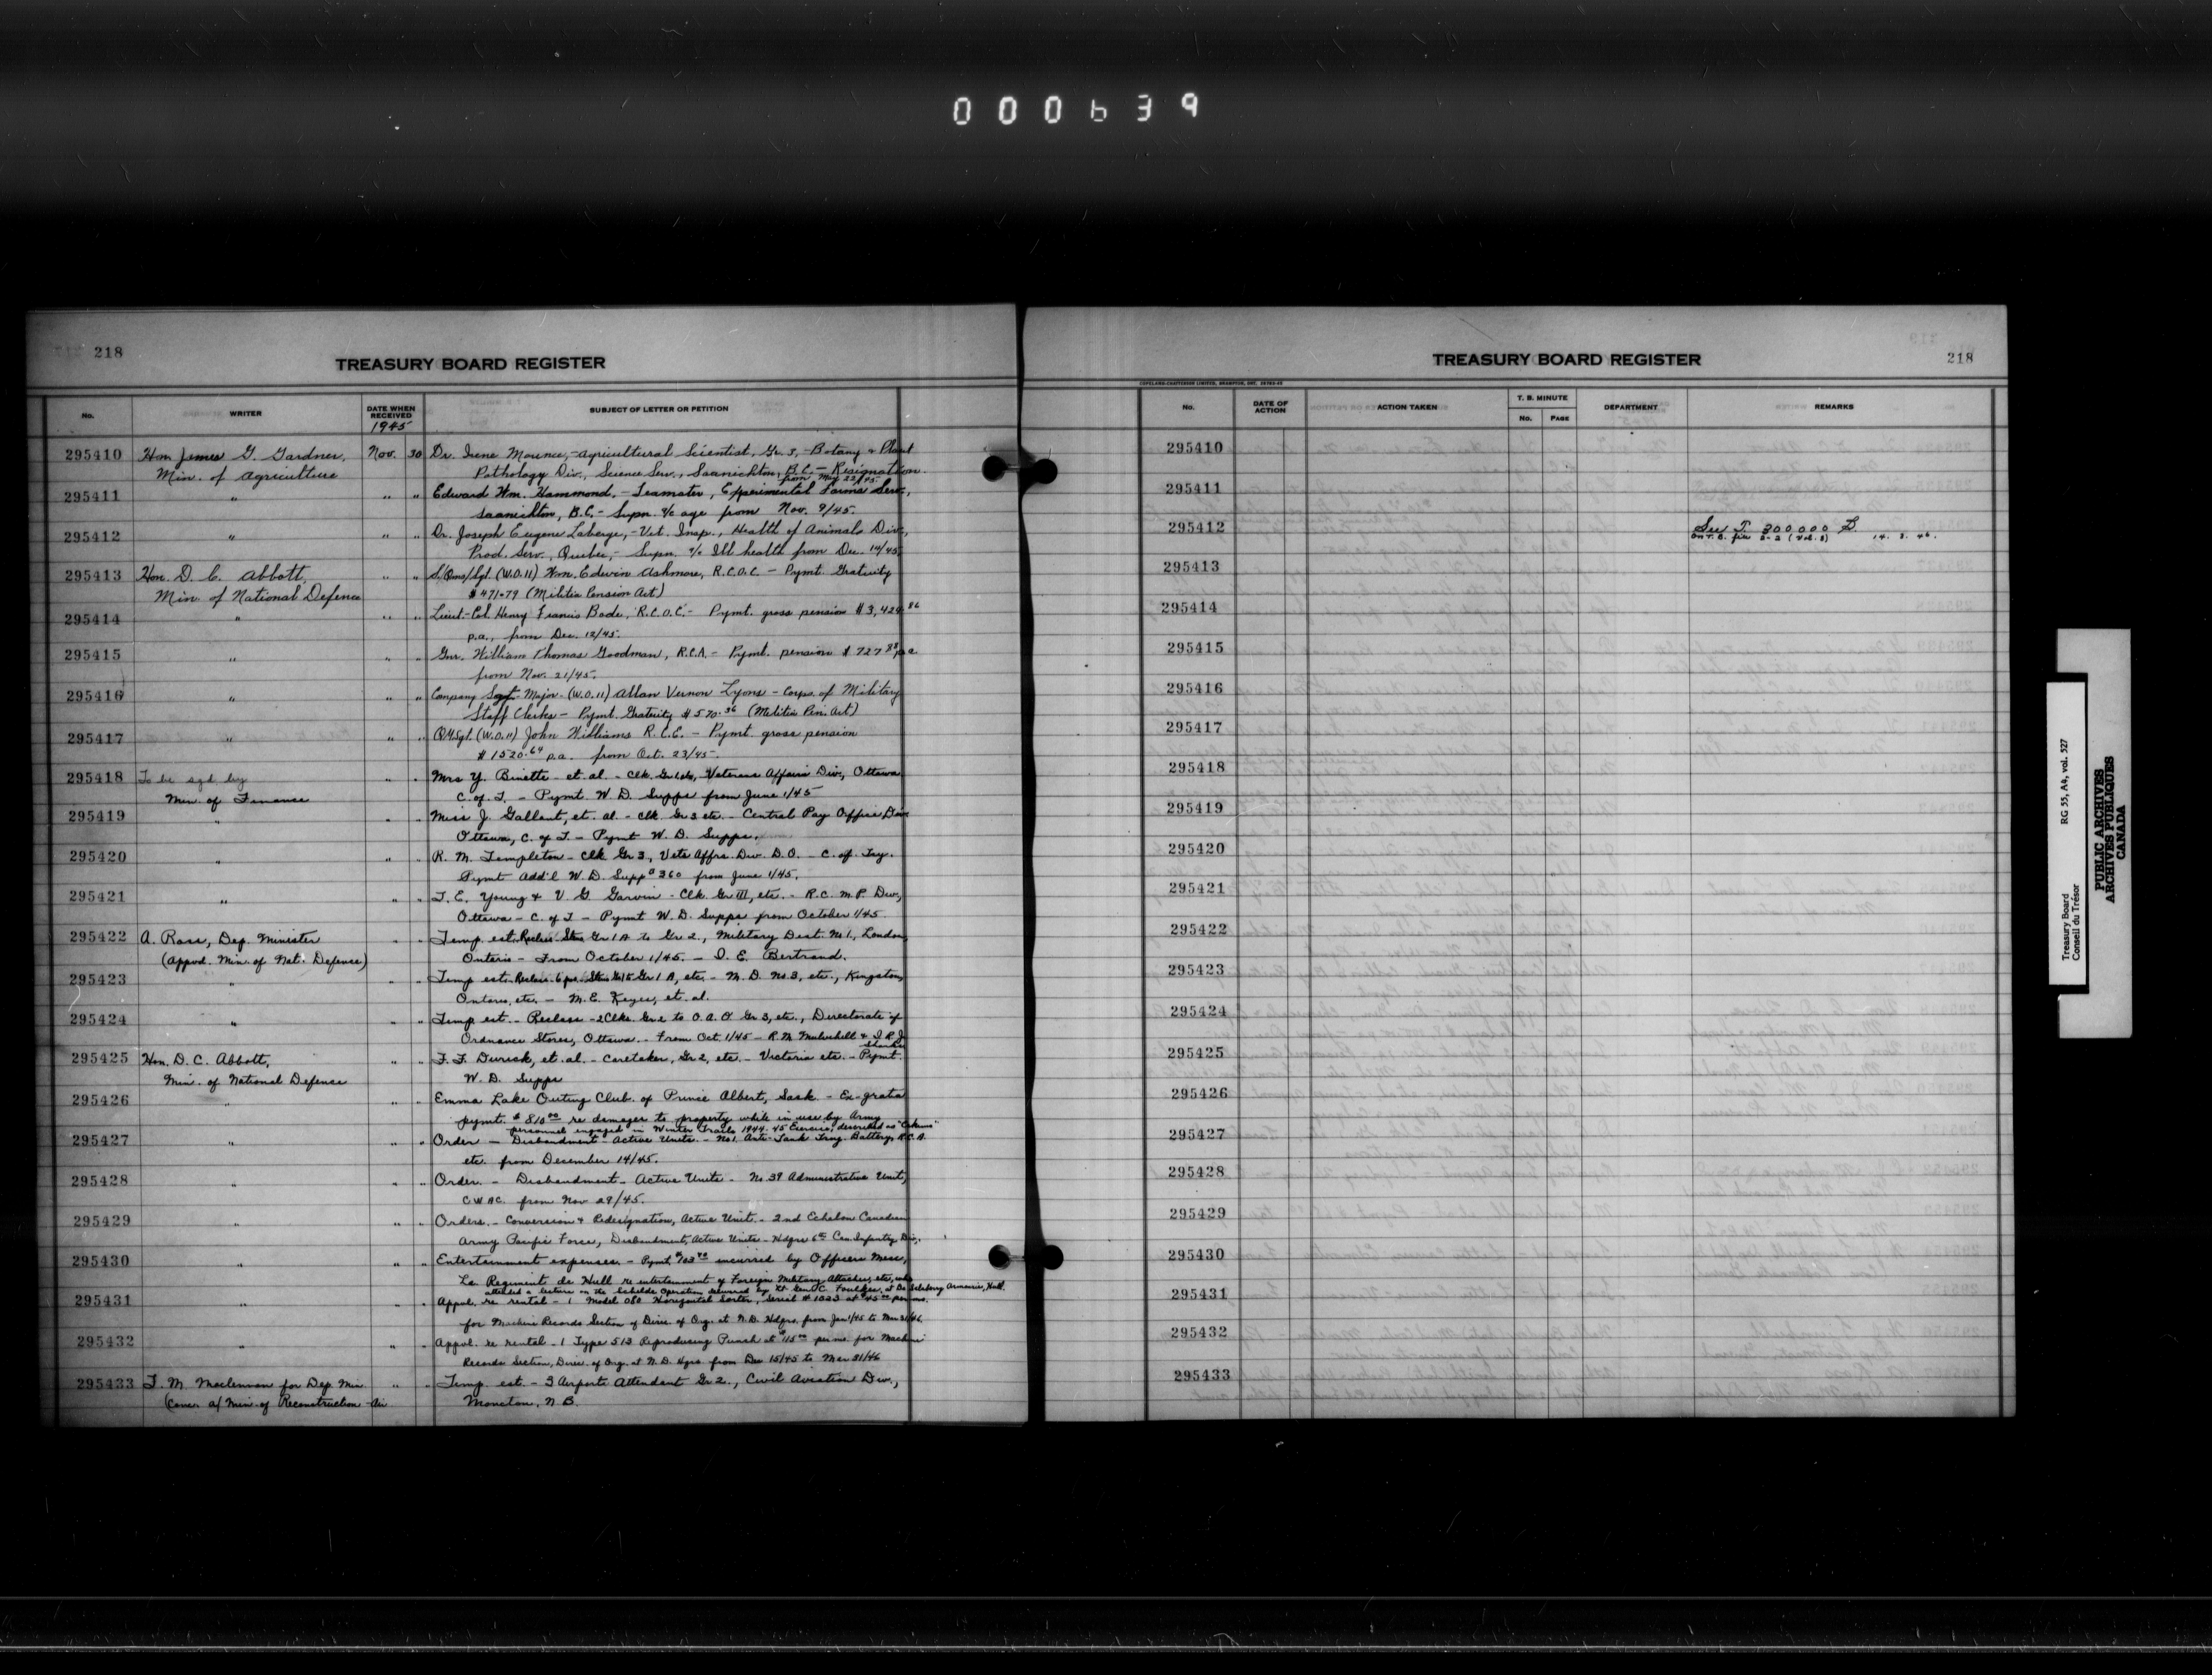 000639
218
TREASURY BOARD REGISTER
No.
WRITER
DATE WHEN RECEIVED
1945
SUBJECT OF LETTER OR PETITION
295410 Hon James G. Gardner, Nov. 30 Dr. Irene Mounce, - Agricultural Scientist, Gr. 3, - Botany & Plant
Min. of Agriculture Pathology Div., Science Serv., Saanichton, B.C. - Resignation
from May 22/45.
295411 " " " Edward Wm. Hammond, - Teamster, Experimental Farms Serv.,
Saanichton, B.C. - Supn. a/c age from Nov. 9/45.
295412 " " " Dr. Joseph Eugene Laberge, - Vet. Insp., Health of Animals Div.,
Prod. Serv., Quebec, - Supn. a/c Ill health from Dec. 14/45.
295413 Hon. D. C. Abbott, " " S/Qms/Sgt. (W.O.11) Wm. Edwin Ashmore, R.C.O.C. - Pymt. Gratuity
Min. of National Defence $471.79 (Militia Pension Act)
295414 " " " Lieut.-Col. Henry Francis Bode, R.C.O.C. - Pymt. gross pension $3,424.86
p.a., from Dec. 12/45.
295415 " " " Gnr. William Thomas Goodman, R.C.A. - Pymt. pension $727.88 p.a.
from Nov. 21/45.
295416 " " " Company Sgt-Major - (W.O.11) Allan Vernon Lyons - Corps. of Military
Staff Clerks - Pymt. Gratuity $570.36 (Militia Pen. Act)
295417 " " " QMSgt. (W.O.11) John Williams R.C.E. - Pymt. gross pension
$1520.64 p.a. from Oct. 23/45.
295418 To be sgd by " " Mrs Y. Binette et. al. - Clk. Gr 1 etc, Veterans Affairs Div., Ottawa
Min. of Finance C. of T. - Pymt. W. D. Supps from June 1/45
295419 " " " Miss J. Gallant, et. al. - Clk. Gr 3 etc. - Central Pay Office Div.
Ottawa, C. of T. - Pymt W. D. Supps.
295420 " " " R. M. Templeton - Clk Gr 3, Vets Affrs. Div. D.O. - C. of Try.
Pymt Add'l W. D. Supp $360 from June 1/45.
295421 " " " T. E. Young & V. G. Garvin - Clk. Gr III, etc. - R.C.M.P. Div.,
Ottawa - C. of T. - Pymt W. D. Supps from October 1/45
295422 A. Ross, Dep. Minister " " Temp. est. Reclass. Steno Gr 1A to Gr 2., Military Dist. No 1., London,
(Appvd. Min. of Nat. Defence) Ontario - From October 1/45. - D. E. Bertrand.
295423 " " " Temp est. Reclass. 6 pos. Steno Gr 1 to Gr 1 A, etc - M. D. No 3, etc., Kingston,
Ontario, etc. - M. E. Keyes, et. al.
295424 " " " Temp est. - Reclass - 2 Clks. Gr 2 to O.A.O. Gr 3, etc., Directorate of
Ordnance Stores, Ottawa. - From Oct. 1/45 - R. M. Mulvihill & I. R. J.
295425 Hon. D. C. Abbott, " " F. F. Durick, et. al. - Caretaker, Gr 2, etc. - Victoria etc. - Pymt.
Min. of National Defence W. D. Supps
295426 " " " Emma Lake Outing Club of Prince Albert, Sask. - Ex-gratia
pymt. $810.00 re damages to property while in use by Army
personnel engaged in Winter Trails 1944-45 Exercise, described as "Eskimo"
295427 " " " Order - Disbandment - Active Units. - No 1. Anti-Tank Trng. Battery, R.C.A.
etc. from December 14/45.
295428 " " " Order. - Disbandment - Active Units - No. 39 Administrative Unit,
C.W.A.C. from Nov 29/45.
295429 " " " Orders. - Conversion & Redesignation, Active Unit. - 2nd Echelon Canadian
Army Pacific Force, Disbandment, Active Units - Hdqrs 6th Can. Infantry Div.
295430 " " " Entertainment expenses. - Pymt. $103.90 incurred by Officers Mess,
Le Regiment de Hull re entertainment of Foreign Military Attaches, etc, who
attended a lecture on the Schelde Operation delivered by Lt. Gen C. Foulkes, at De Salaberry Armouries, Hull.
295431 " " " Appvl. re rental - 1 Model 080 Horizontal Sorter, Serial # 1323 at $45.00 per mo.
for Machine Records Section of Direc. of Org. at N.D. Hdqrs. from Jan 1/45 to Mar 31/46.
295432 " " " Appvl. re rental - 1 Type 513 Reproducing Punch at $115.00 per mo. for Machine
Records Section, Direc. of Org. at N.D. Hqrs. from Dec 15/45 to Mar 31/46
295433 T. M. Maclennan for Dep. Min. " " Temp. est. - 3 Airports Attendant Gr 2., Civil Aviation Div.,
(Conc. a/ Min. of Reconstruction - Air Moncton, N.B.
TREASURY BOARD REGISTER
218
COPELAND-CHATTERSON LIMITED, BRAMPTON, ONT.
No.
DATE OF ACTION
ACTION TAKEN
T. B. MINUTE
No. PAGE
DEPARTMENT
REMARKS
295410
295411
295412 See T. 300000 B.
on T. B. file 2-2 (Vol. 8) 14. 8. 46.
295413
295414
295415
295416
295417
295418
295419
295420
295421
295422
295423
295424
295425
295426
295427
295428
295429
295430
295431
295432
295433
Treasury Board RG 55, A4, vol. 527
Conseil du Trésor
PUBLIC ARCHIVES
ARCHIVES PUBLIQUES
CANADA